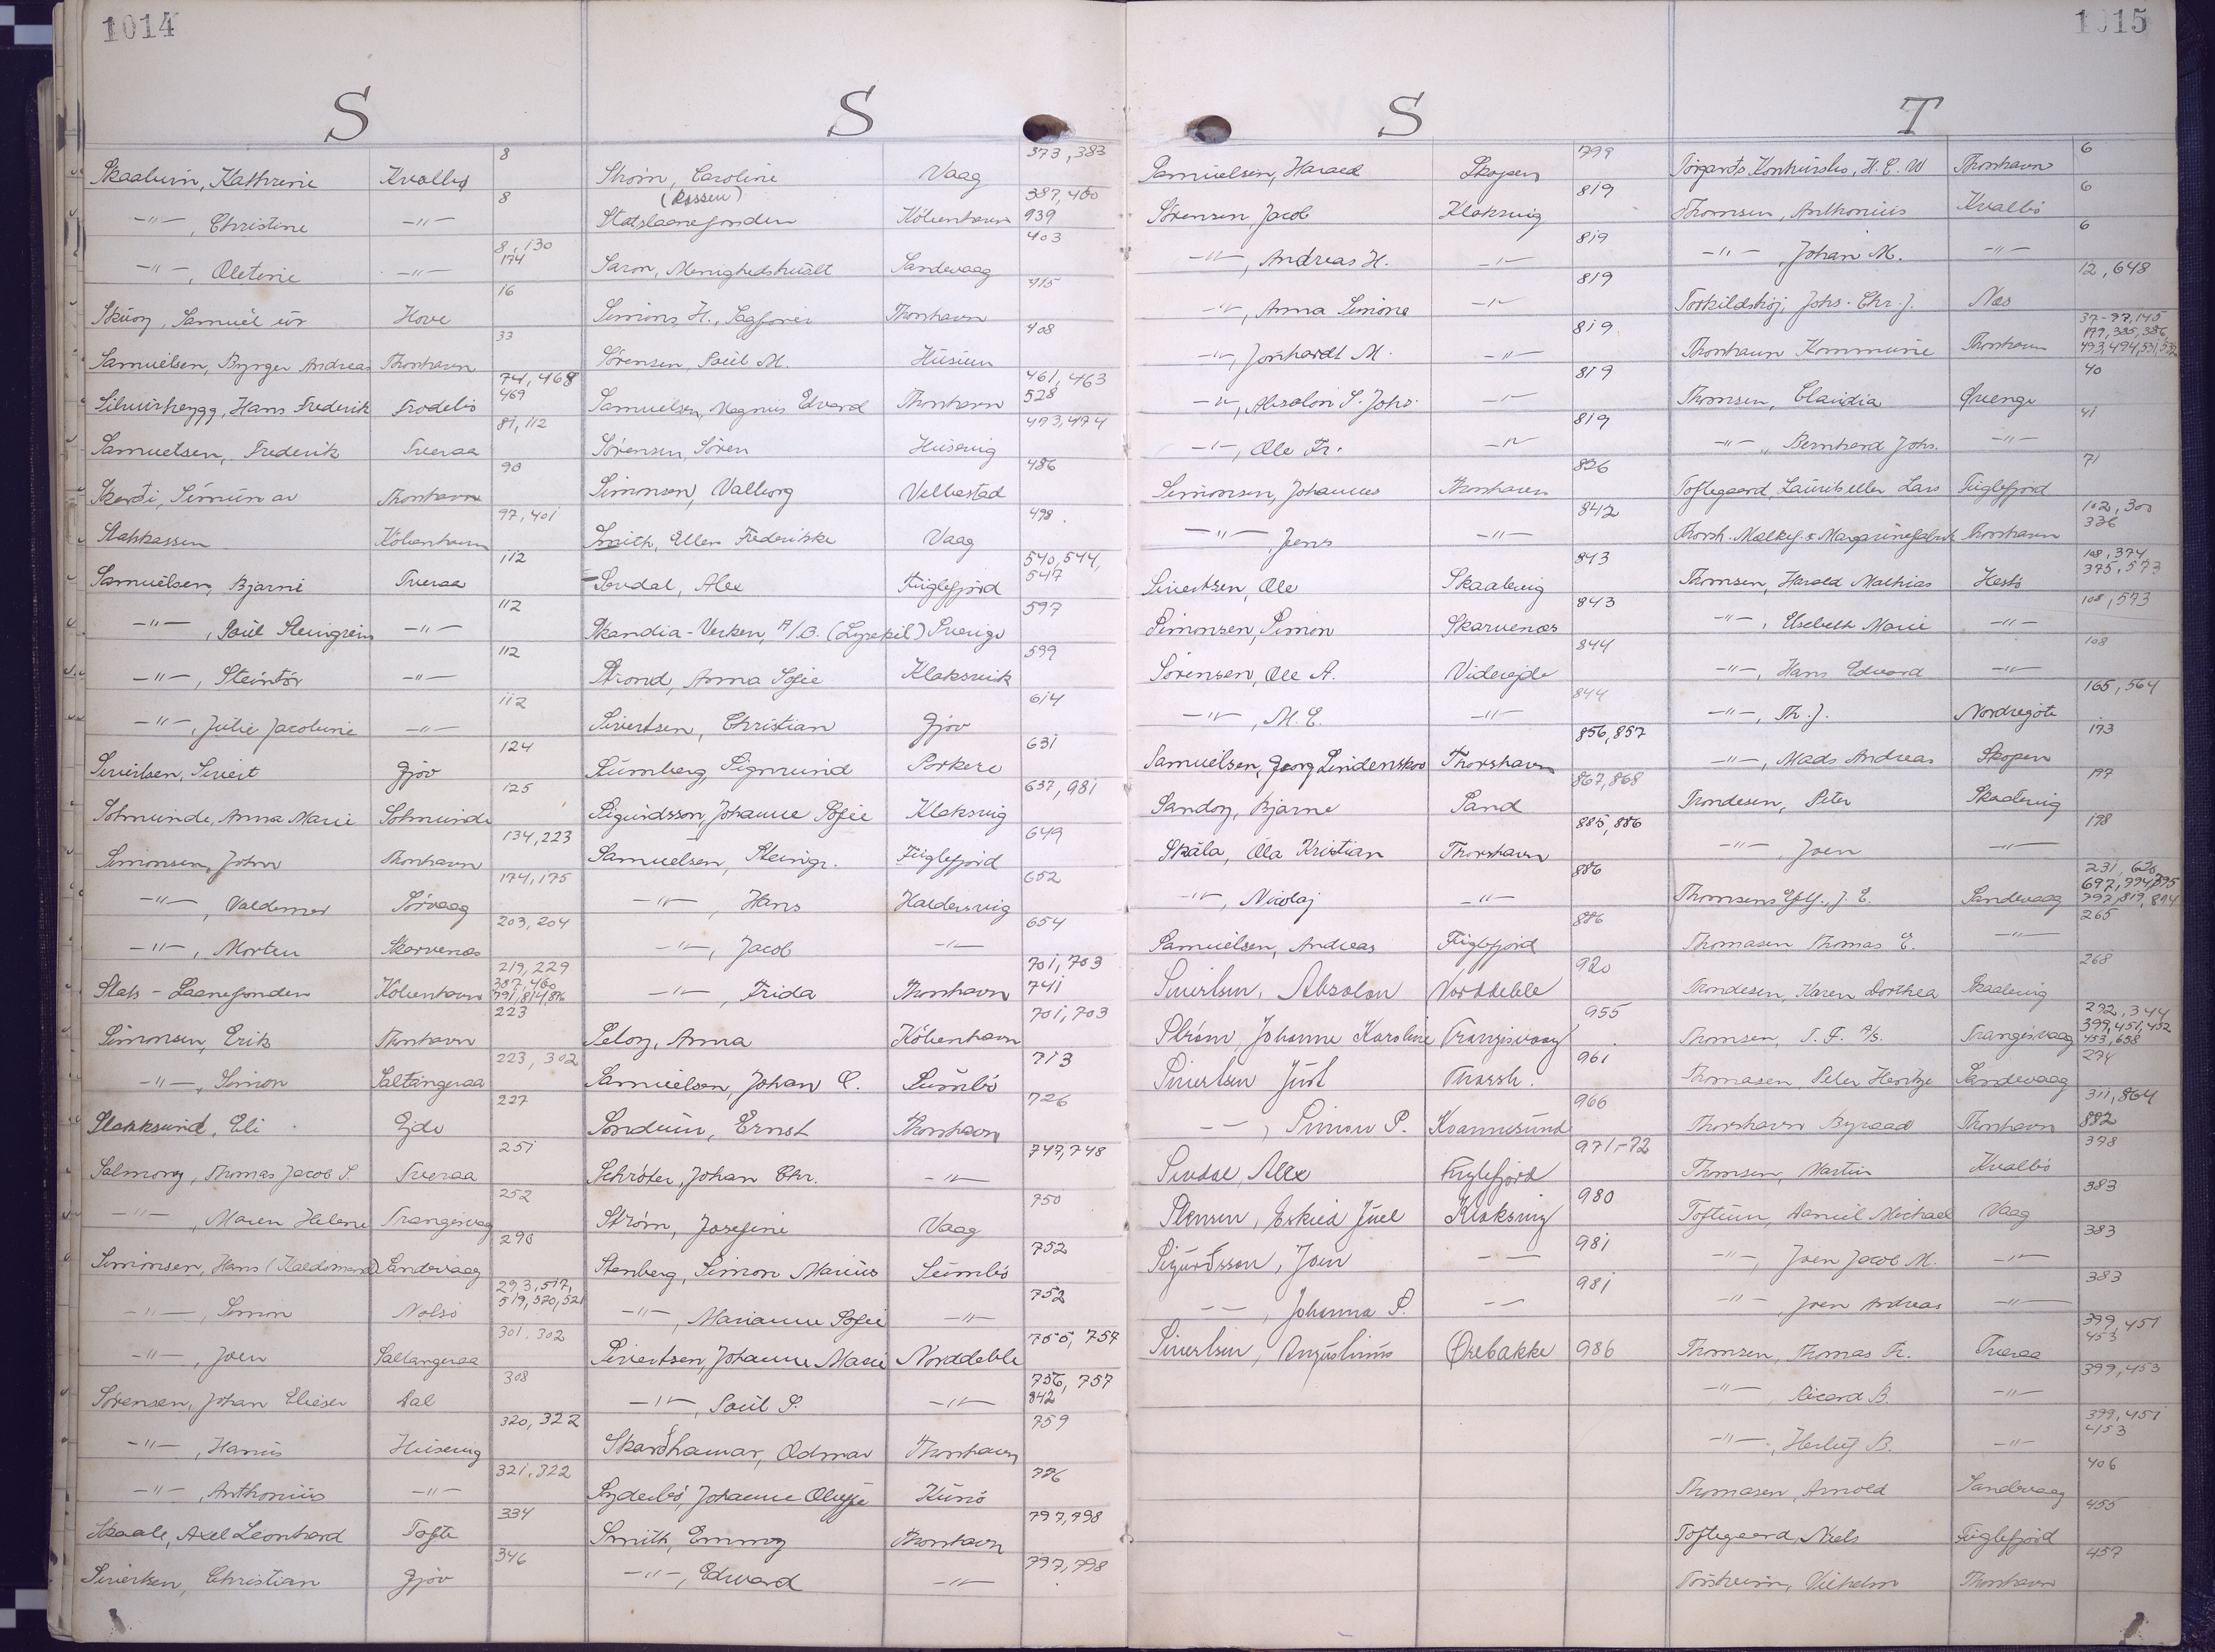 1014
S
Skaalum, Kathrine Kvalbø 8
—"—, Christine —"— 8
—"—, Oletine —"— 8, 130 174
Skúoy, Samuel úr Hove 16
Samuelsen, Byrger Andreas Thorshavn 33
Silvurhygg, Hans Frederik Frodebö 74, 468 469
Samuelsen, Frederik Tveraa 81, 112
Skarði, Símun av Thorshavn 90
Statskassen København 97, 401
Samuelsen, Bjarni Tveraa 112
—"—, Poul Steingrim —"— 112
—"—, Steintór —"— 112
—"—, Julie Jacobine —"— 112
Sivertsen, Sivert Gjov 124
Solmunde, Anna Marie Solmunde 125
Simonsen, John Thorshavn 134, 223
—"—, Valdemar Sørvaag 174, 175
—"—, Morten Skarvenes 203, 204
Stats-Laanefonden København 219, 229 387, 460 791, 814, 816
Simonsen, Erik Thorshavn 223
—"—, Simon Saltangeraa 223, 302
Slakksund, Eli Ejde 227
Salmony, Thomas Jacob S. Tveraa 251
—"—, Maren Helene Trangisvaag 252
Simonsen, Hans (Kaldsmand) Sandevaag 290
—"—, Simon Nolsö 293, 517, 519, 520, 521
—"—, Joen Saltangeraa 301, 302
Sørensen, Johan Elieser Dal 308
—"—, Hanus Husevig 320, 322
—"—, Anthonius —"— 321, 322
Skaale, Axel Leonhard Tofte 334
Sivertsen, Christian Gjov 346
S
Strøm, Caroline Vaag 373, 383
(Rossen)
Statslaanefonden København 387, 460 939
Saron, Menighedshuset Sandevaag 403
Simons, H., Sagfører Thorshavn 415
Sørensen, Poul M. Húsum 408
Samuelsen, Magnus Edvard Thorshavn 461, 463 528
Sørensen, Søren Husevig 473, 474
Simonsen, Valborg Velbastad 486
Smith, Ellen Frederikke Vaag 498
Sivdal, Alex Fuglefjord 540, 544, 547
Skandia-Verken, A/B. (Lysekil) Sverige 597
Strond, Anna Sofie Klaksvik 599
Sivertsen, Christian Gjov 614
Sumberg, Sigmund Porkere 631
Sigurdsson, Johanne Sofie Klaksvig 637, 981
Samuelsen, Steingr. Fuglefjord 649
—"—, Hans Haldersvig 652
—"—, Jacob —"— 654
—"—, Frida Thorshavn 701, 703 741
Seloy, Anna København 701, 703
Samuelsen, Johan C. Sumbö 713
Sondum, Ernst Thorshavn 726
Schröter, Johan Chr. —"— 747, 748
Strøm, Josefine Vaag 750
Stenberg, Simon Marius Sumbö 752
—"—, Marianne Sofie —"— 752
Sivertsen, Johanne Marie Norddeble 755, 757
—"—, Poul P. —"— 756, 757 842
Skarðhamar, Odmar Thorshavn 759
Syderbö, Johanne Oluffa Kunö 776
Smith, Emmy Thorshavn 797, 798
—"—, Edward —"— 797, 798
1015
S
Samuelsen, Harald Skopen 799
Sørensen, Jacob Klaksvig 819
—"—, Andreas H. —"— 819
—"—, Anna Simone —"— 819
—"—, Jónhardt M. —"— 819
—"—, Absalon S. Johs. —"— 819
—"—, Ole Fr. —"— 819
Simonsen, Johannes Thorshavn 826
—"—, Jens —"— 842
Sivertsen, Ole Skaalevig 843
Simonsen, Simon Skarvenes 843
Sørensen, Ole A. Viderejde 844
—"—, M. E. —"— 844
Samuelsen, Georg Lindenskov Thorshavn 856, 857
Sandoy, Bjarne Sand 867, 868
Skála, Óla Kristian Thorshavn 885, 886
—"—, Nicolaj —"— 886
Samuelsen, Andreas Fuglefjord 886
Sivertsen, Absalon Norddeble 920
Strøm, Johanne Karoline Trangisvaag 955
Sivertsen Just Thorsh. 961
—"—, Simon P. Kvannesund 966
Sivdal, Alex Fuglefjord 971-72
Stensen, Eskild Juel Klaksvig 980
Sigurðsson, Joen —"— 981
—"—, Johanna S. —"— 981
Sivertsen, Augustinus Ørebakke 986
T
Torgards Konkursbo, H. C. W Thorshavn 6
Thomsen, Anthonius Kvalbö 6
—"—, Johan M. —"— 6
Torkildshøj, Johs. Chr. J. Nes 12, 648
Thorshavn Kommune Thorshavn 37-97, 145 179, 335, 386 493, 494, 531, 532
Thomsen, Claudia Øvenge 40
—"—, Bernhard Johs. —"— 41
Toftegaard, Laurits eller Lars Fuglefjord 71
Thorsh. Mælkef. & Margarinefabrik Thorshavn 102, 300 336
Thomsen, Harald Mathias Hestö 108, 374 375, 573
—"—, Elsebeth Marie —"— 108, 573
—"—, Hans Edvard —"— 108
—"—, Th. J. Nordregöte 165, 564
—"—, Mads Andreas Skopen 173
Trondesen, Peter Skaalevig 197
—"—, Joen —"— 198
Thomsens Eftf., J. E. Sandevaag 231, 620 697, 794, 795 797, 819, 894
Thomasen Thomas E. —"— 265
Trondesen, Karen Dorthea Skaalevig 268
Thomsen, T. F. A/S. Trangisvaag 272, 344 399, 451, 452 453, 658
Thomasen, Peter Hentze Sandevaag 274
Thorshavn Byraad Thorshavn 311, 864 882
Thomsen, Martin Kvalbö 378
Toftum, Daniel Michael Vaag 383
—"—, Joen Jacob M. —"— 383
—"—, Joen Andreas —"— 383
Thomsen, Thomas Fr. Tveraa 399, 451 453
—"—, Ricard B. —"— 399, 453
—"—, Herluf B. —"— 399, 451 453
Thomasen, Arnold Sandevaag 406
Toftegaard, Niels Fuglefjord 455
Torsheim, Vilhelm Thorshavn 457